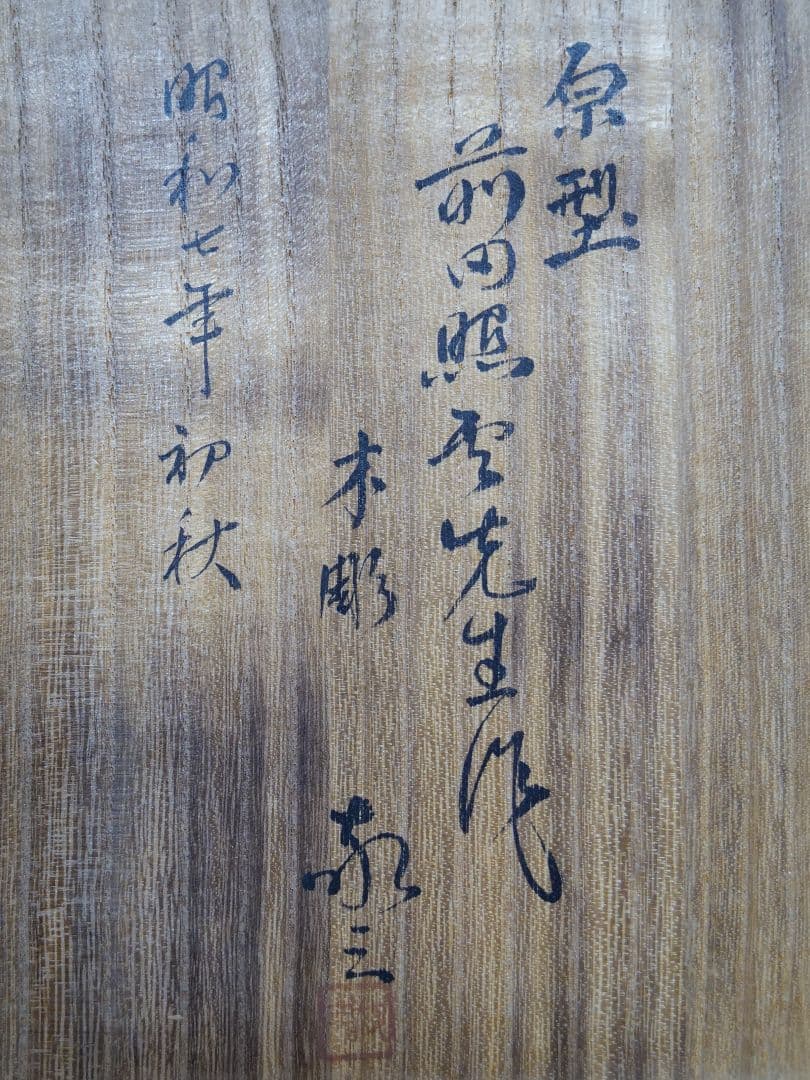 原型
前田照雲先生作
木彫 敬三
昭和七年 初秋